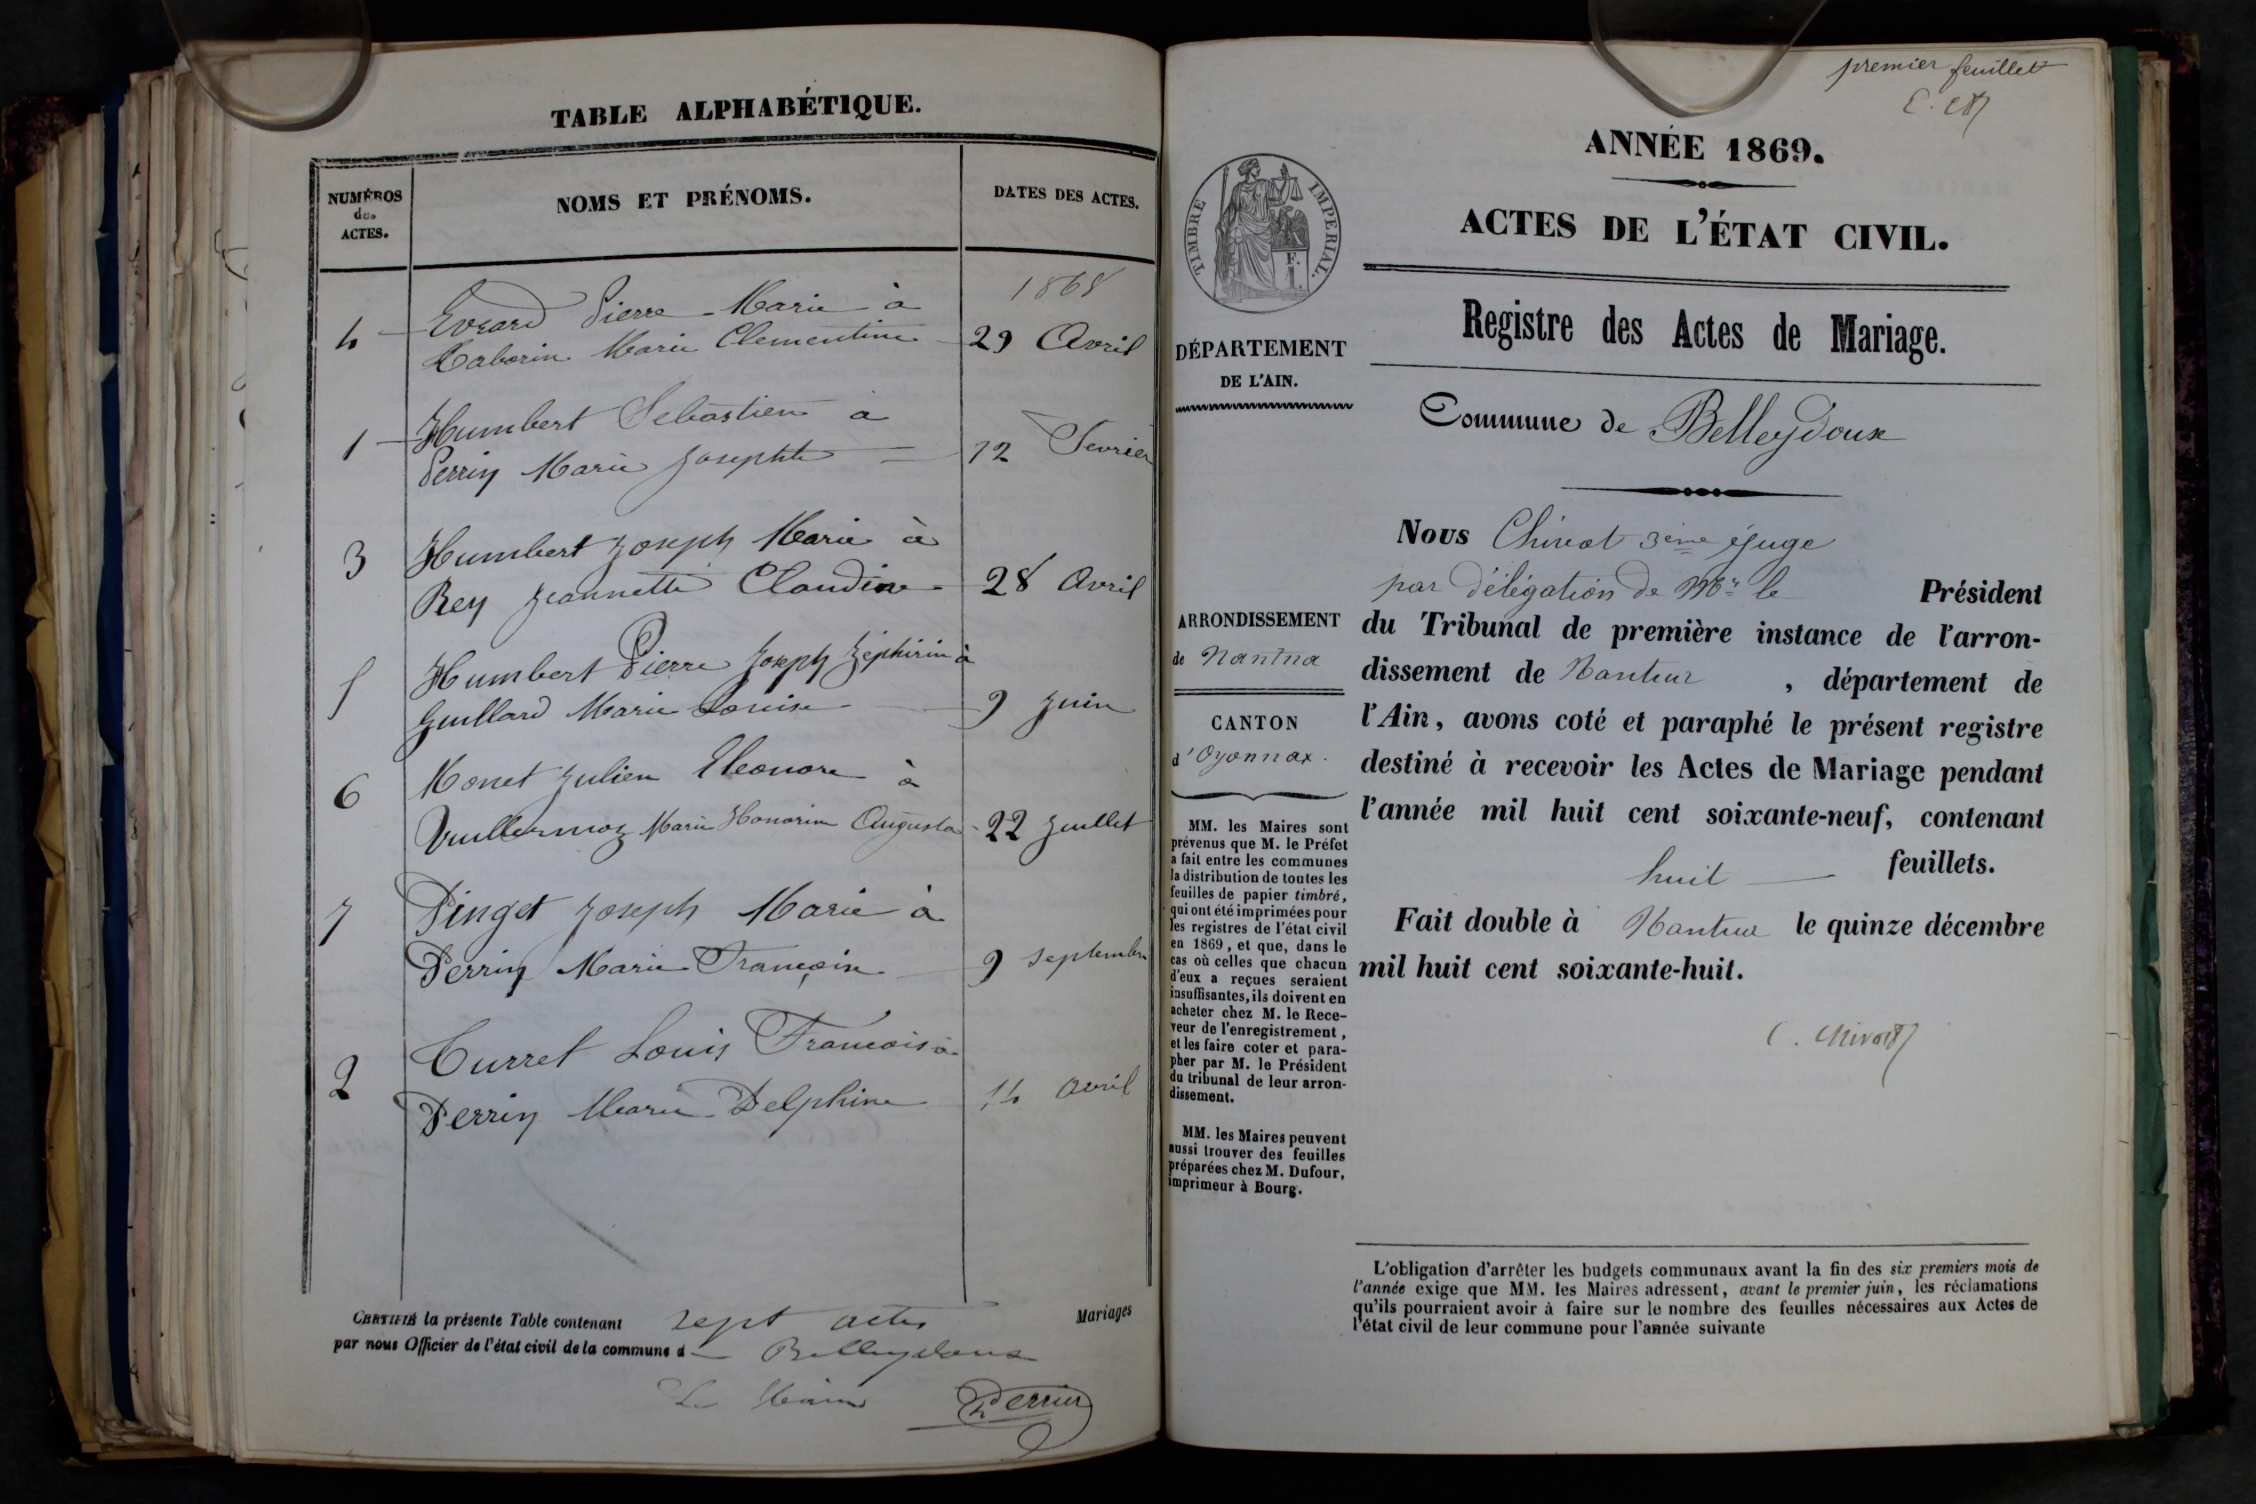 TABLE ALPHABÉTIQUE.
NUMÉROS
des
ACTES.
NOMS ET PRÉNOMS.
DATES DES ACTES.
1868
4 Evrard Pierre Marie à
Maborin Marie Clementine 29 Avril
1 Humbert Sebastien a
Perrin Marie Josephte 12 Fevrier
3 Humbert Joseph Marie à
Rey Jeannette Claudine 28 Avril
5 Humbert Pierre Joseph Zéphirin à
Guillard Marie Louise 9 Juin
6 Monet Julien Eleonore à
Vuillermoz Marie Honorine Augusta 22 Juillet
7 Pinget Joseph Marie à
Perrin Marie Françoise 9 septembre
2 Turret Louis Francois à
Perrin Marie Delphine 14 avril
CERTIFIÉ la présente Table contenant sept actes Mariages
par nous Officier de l'état civil de la commune d Belleydoux
Le Maire Perrier
premier feuillet
ANNÉE 1869.
ACTES DE L'ÉTAT CIVIL.
TIMBRE IMPERIAL.
F.
Registre des Actes de Mariage.
DÉPARTEMENT
DE L'AIN.
Commune de Belleydoux
Nous Chivot 3ème juge
par délégation de Mr le Président
du Tribunal de première instance de l'arron-
dissement de Nantua , département de
l'Ain, avons coté et paraphé le présent registre
destiné à recevoir les Actes de Mariage pendant
l'année mil huit cent soixante-neuf, contenant
huit feuillets.
Fait double à Nantua le quinze décembre
mil huit cent soixante-huit.
C. Chivot
ARRONDISSEMENT
de Nantua
CANTON
d'Oyonnax.
MM. les Maires sont
prévenus que M. le Préfet
a fait entre les communes
la distribution de toutes les
feuilles de papier timbré,
qui ont été imprimées pour
les registres de l'état civil
en 1869, et que, dans le
cas où celles que chacun
d'eux a reçues seraient
insuffisantes, ils doivent en
acheter chez M. le Rece-
veur de l'enregistrement,
et les faire coter et para-
pher par M. le Président
du tribunal de leur arron-
dissement.
MM. les Maires peuvent
aussi trouver des feuilles
préparées chez M. Dufour,
imprimeur à Bourg.
L'obligation d'arrêter les budgets communaux avant la fin des six premiers mois de
l'année exige que MM. les Maires adressent, avant le premier juin, les réclamations
qu'ils pourraient avoir à faire sur le nombre des feuilles nécessaires aux Actes de
l'état civil de leur commune pour l'année suivante